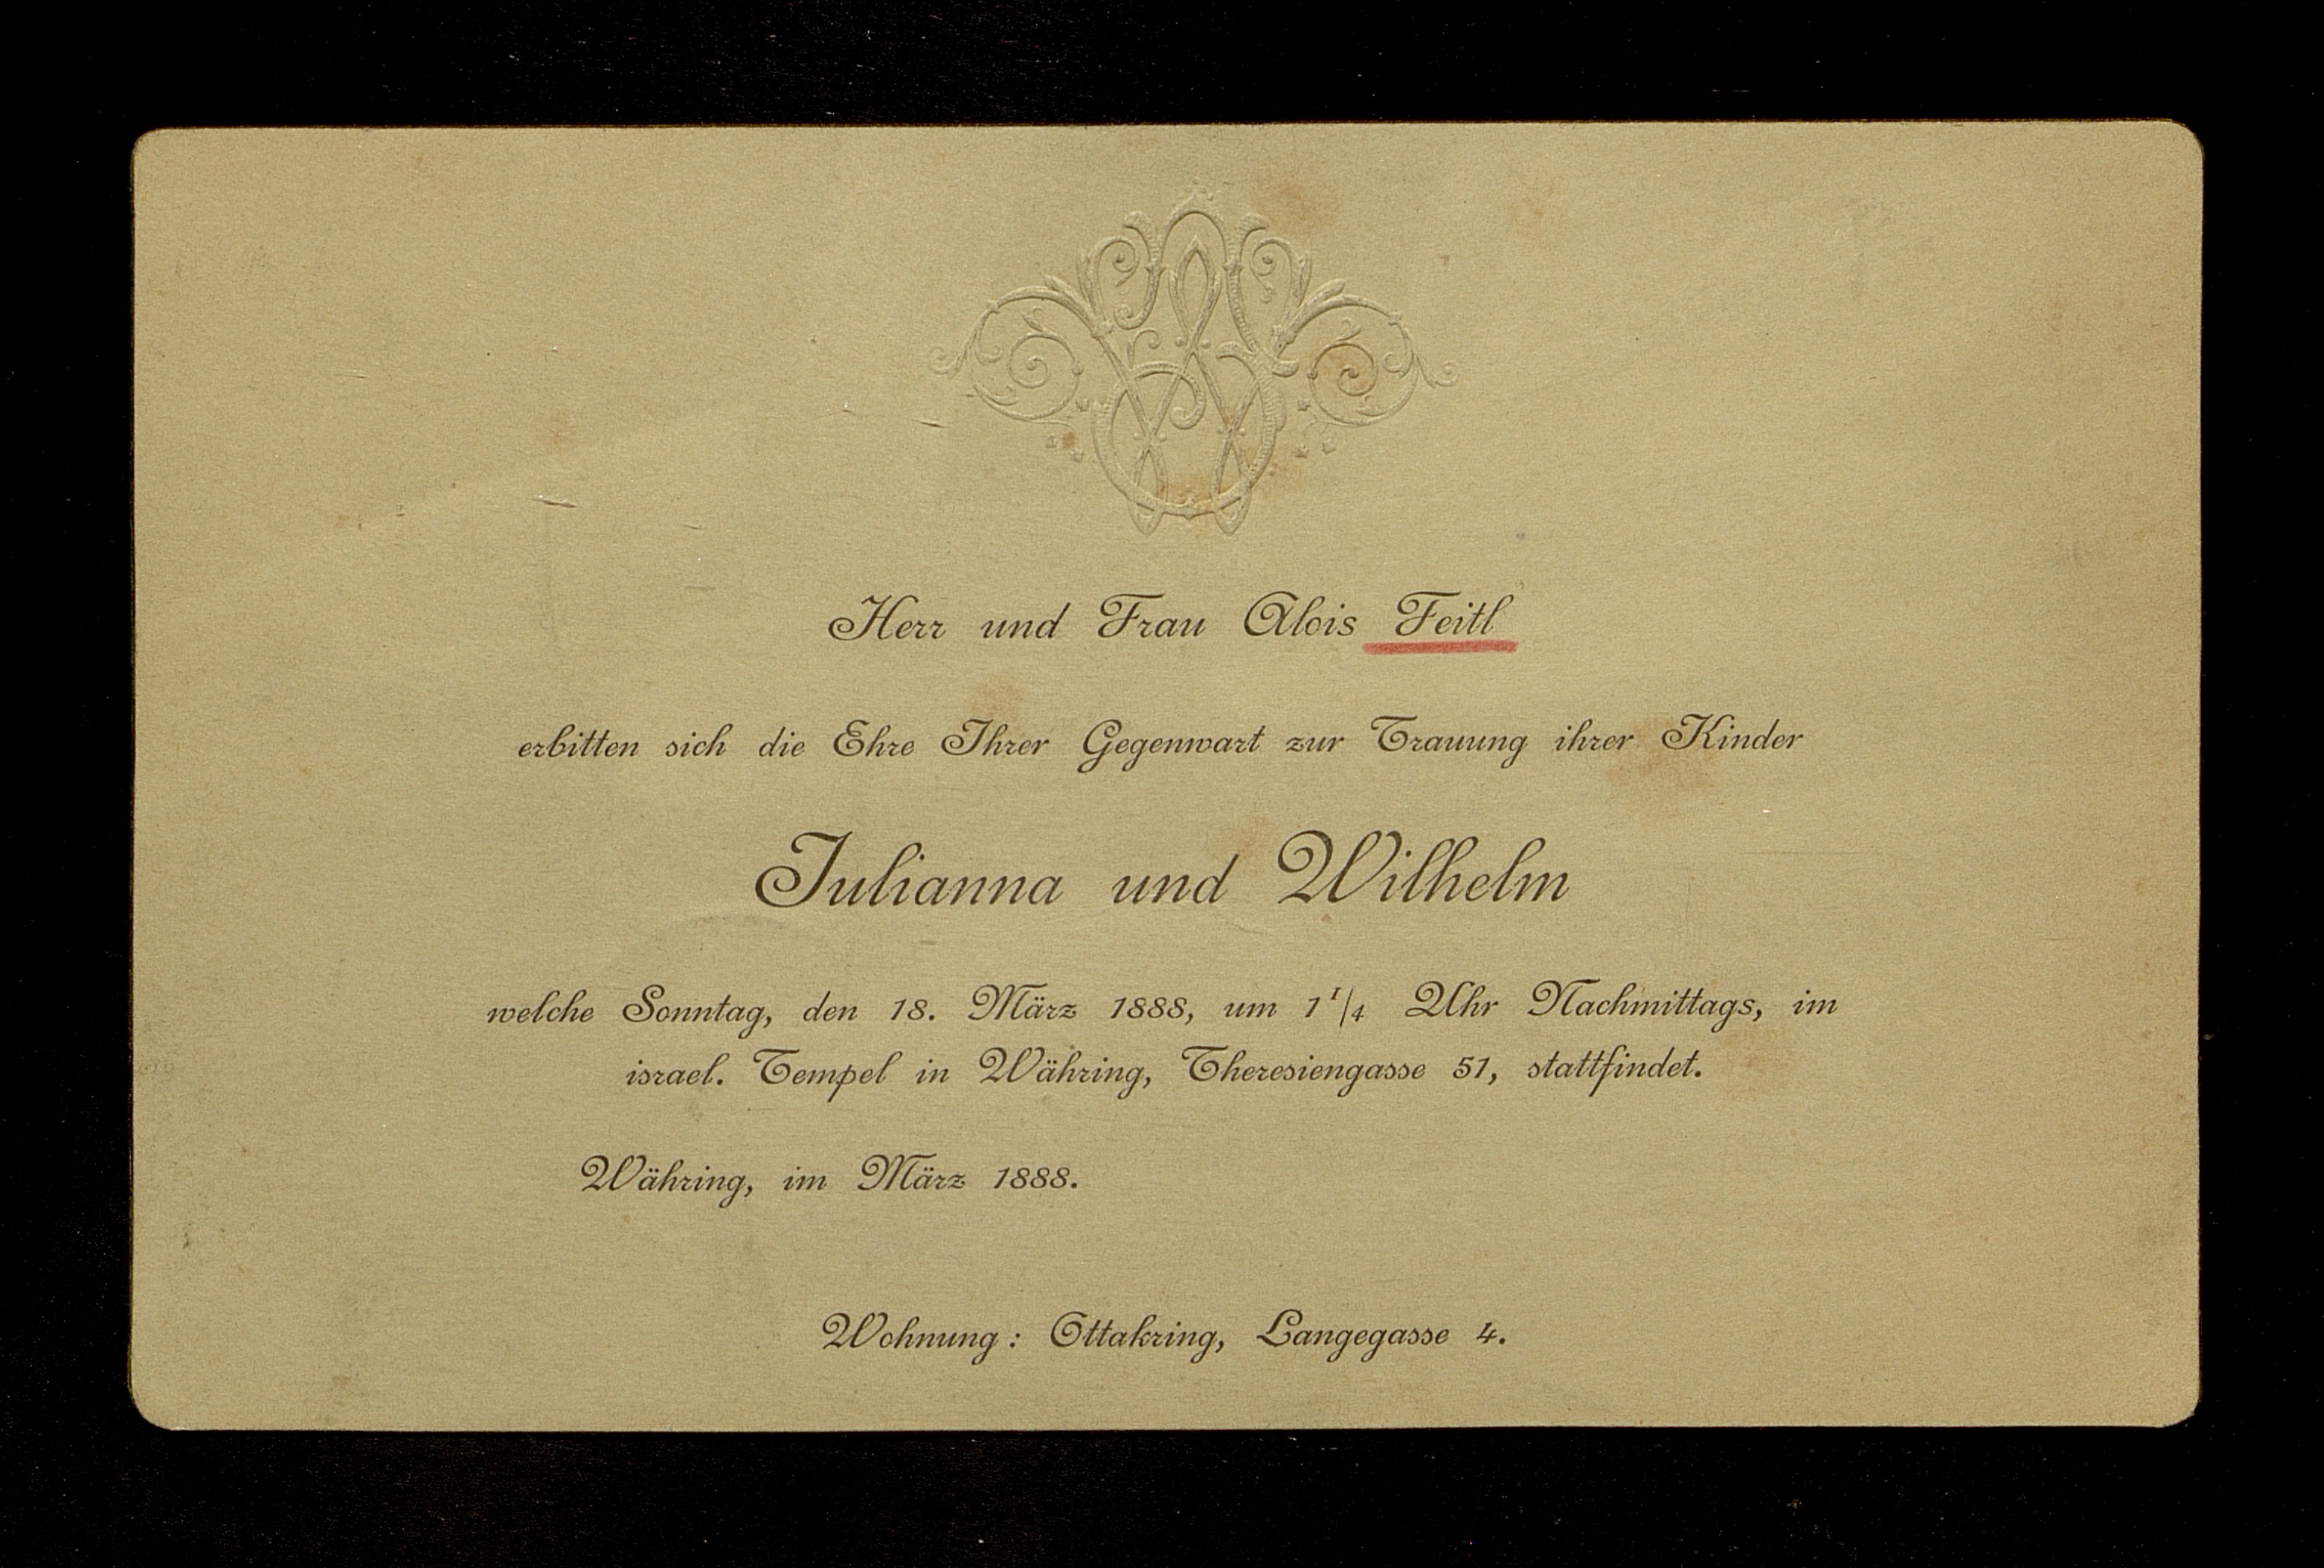 Herr und Frau Alois Feitl
erbitten sich die Ehre Ihrer Gegenwart zur Trauung ihrer Kinder
Julianna und Wilhelm
welche Sonntag, den 18. März 1888, um 1 1/4 Uhr Nachmittags, im
israel. Tempel in Währing, Theresiengasse 51, stattfindet.
Währing, im März 1888.
Wohnung: Ottakring, Langegasse 4.